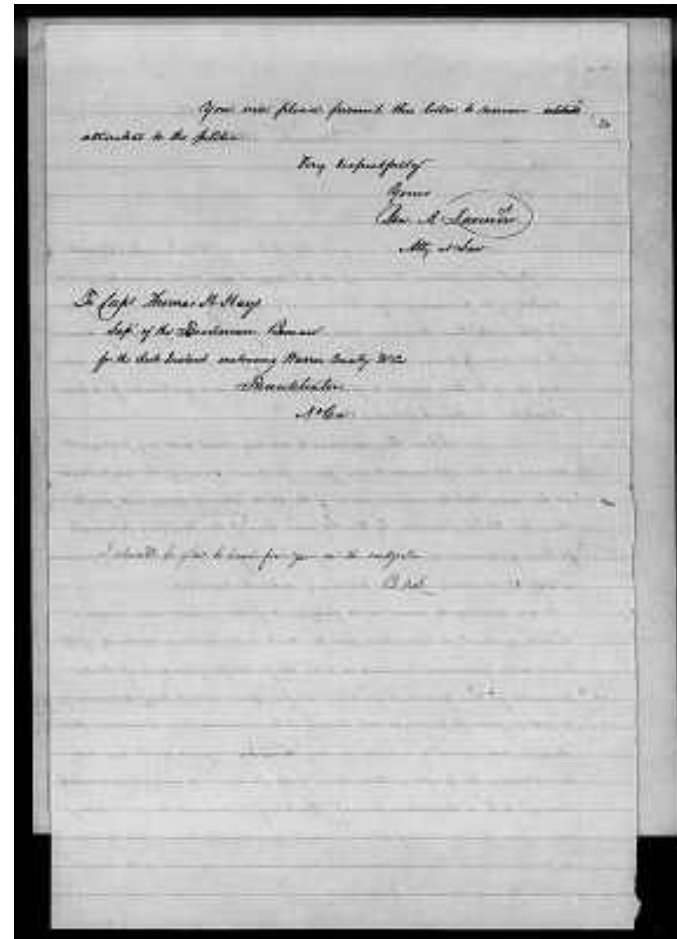 You will please permit this letter to remain
attached to the petition
Very respectfully
Yours
Atty at Law
To Capt Thomas H. Hay
Supt of the Freedmens Bureau
for the Sub District embracing Warren County N.C.
N. Ca
I should be glad to hear from you on the subject